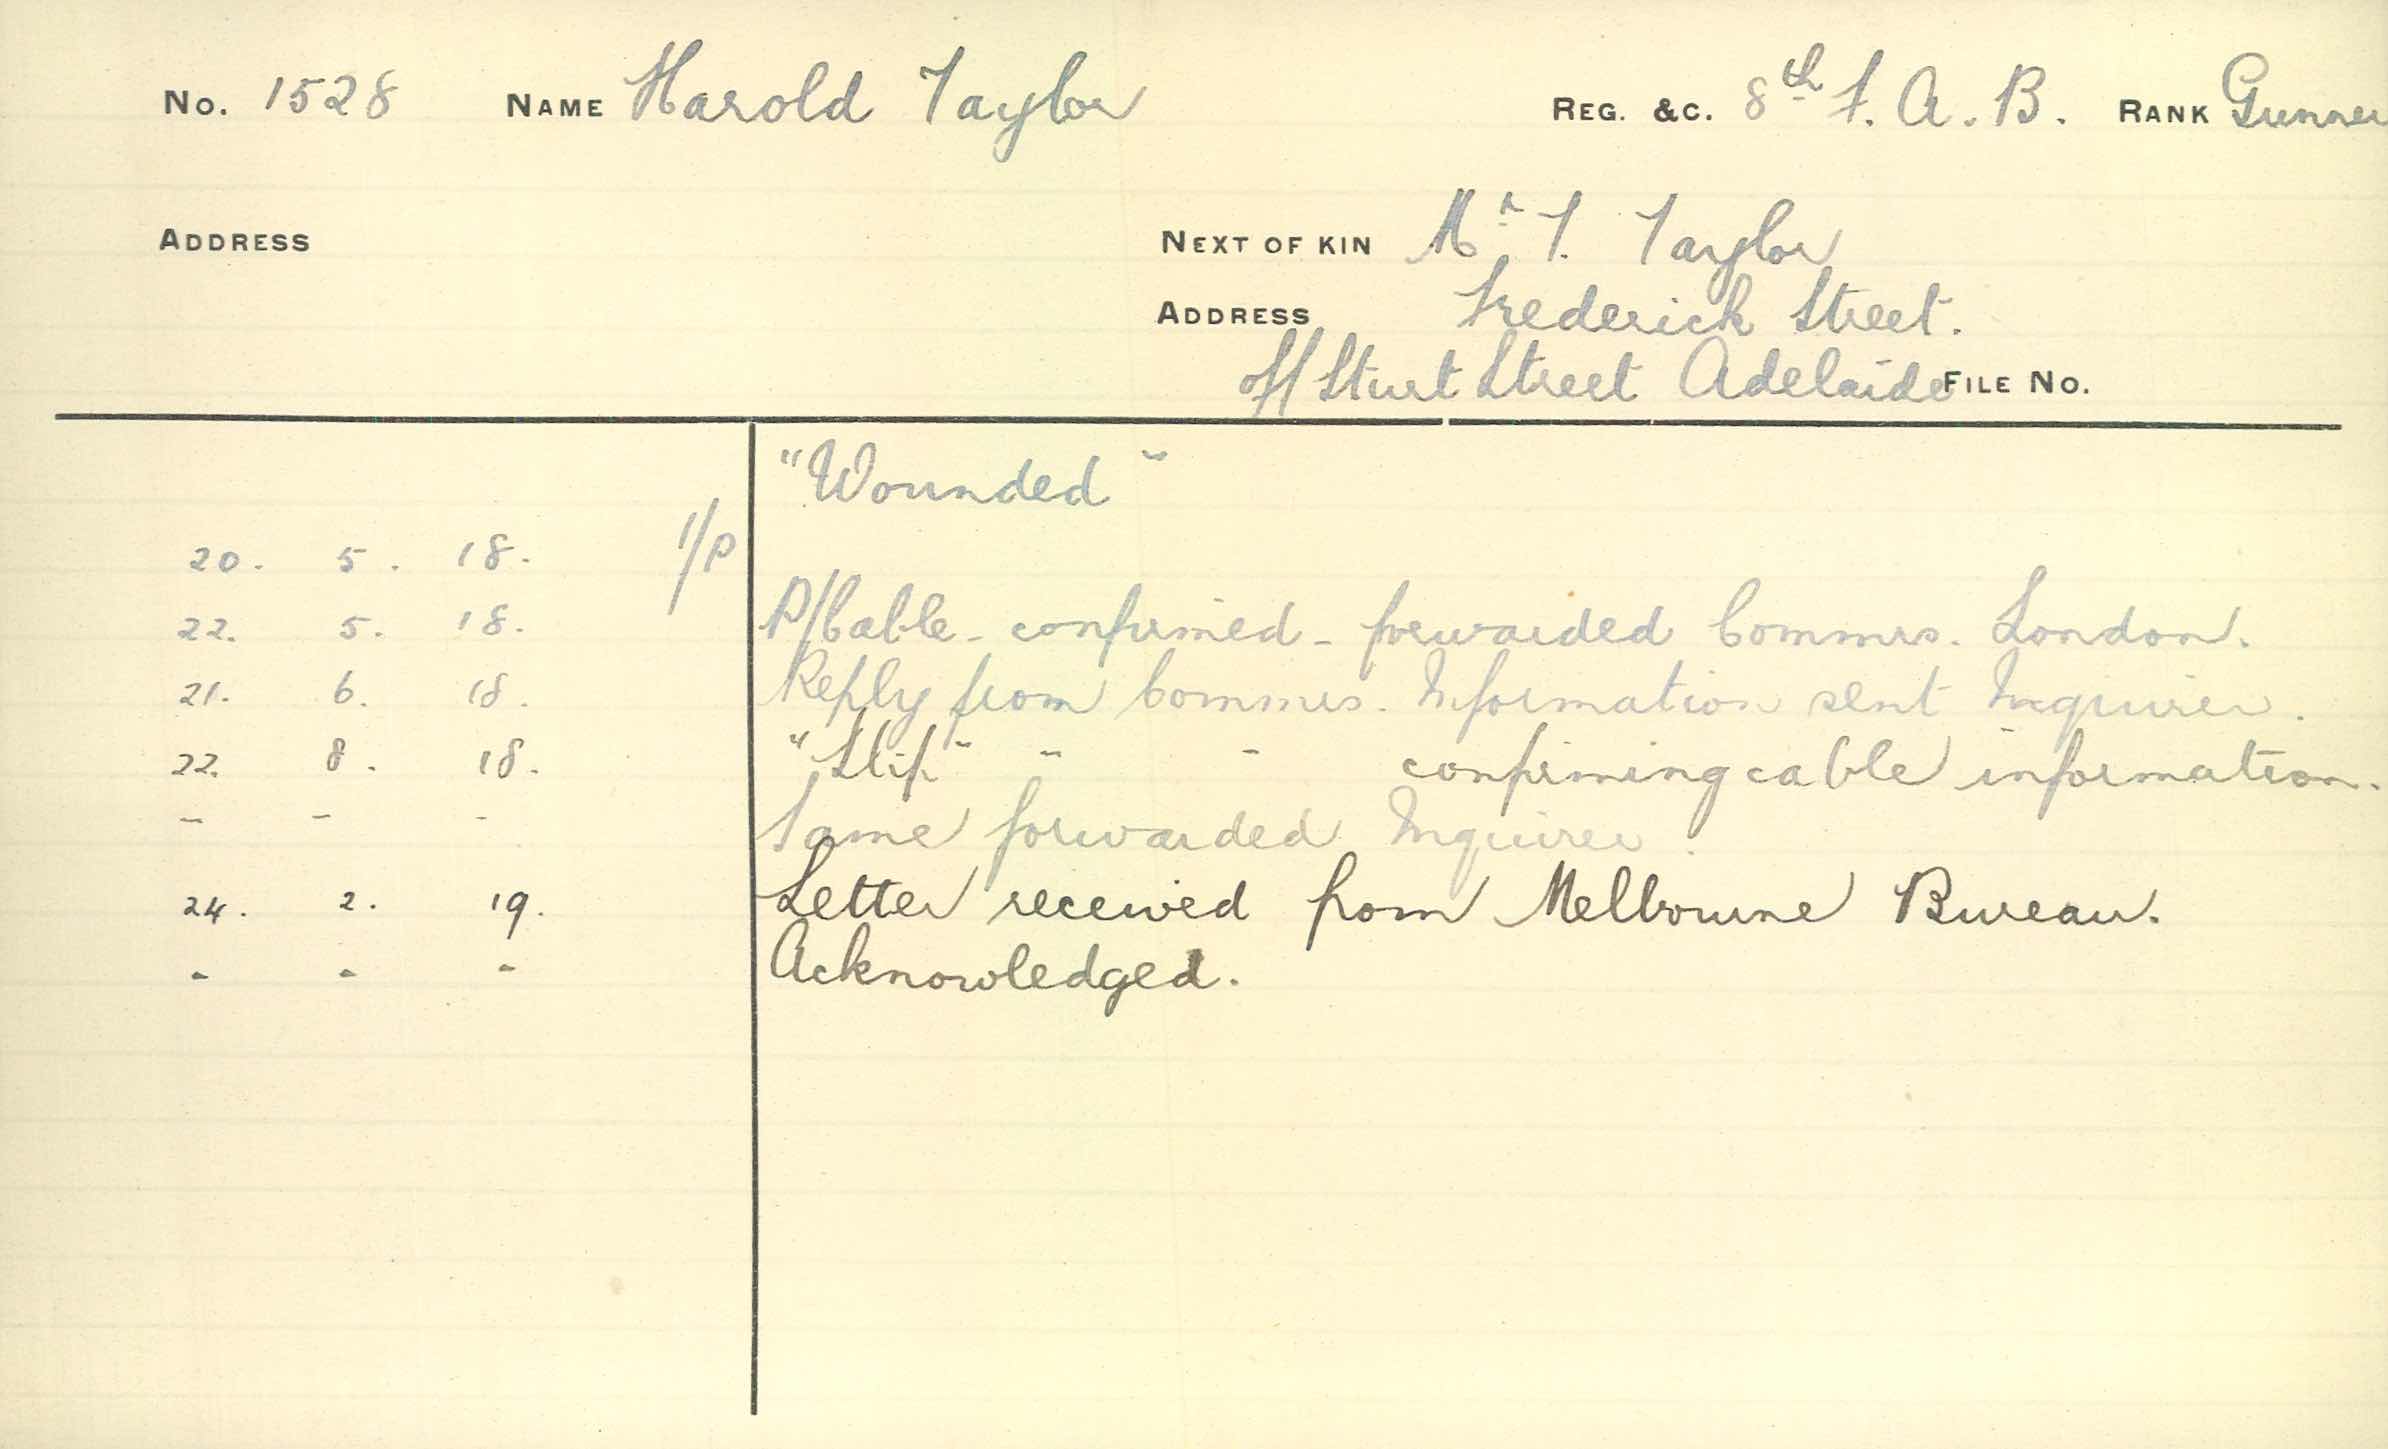 No. 1528 NAME Harold Taylor REG. &C. 8th F. A. B. RANK Gunner
ADDRESS NEXT OF KIN Mr T. Taylor
ADDRESS Frederick Street.
off Sturt Street Adelaide FILE No.
"Wounded"
20. 5. 18. 1/P
22. 5. 18. P/Cable - confirmed - forwarded Commrs. London.
21. 6. 18. Reply from Commrs. Information sent Inquirer.
22. 8. 18. "Slip" " " confirming cable information.
" " " Same forwarded Inquirer.
24. 2. 19. Letter received from Melbourne Bureau.
" " " Acknowledged.